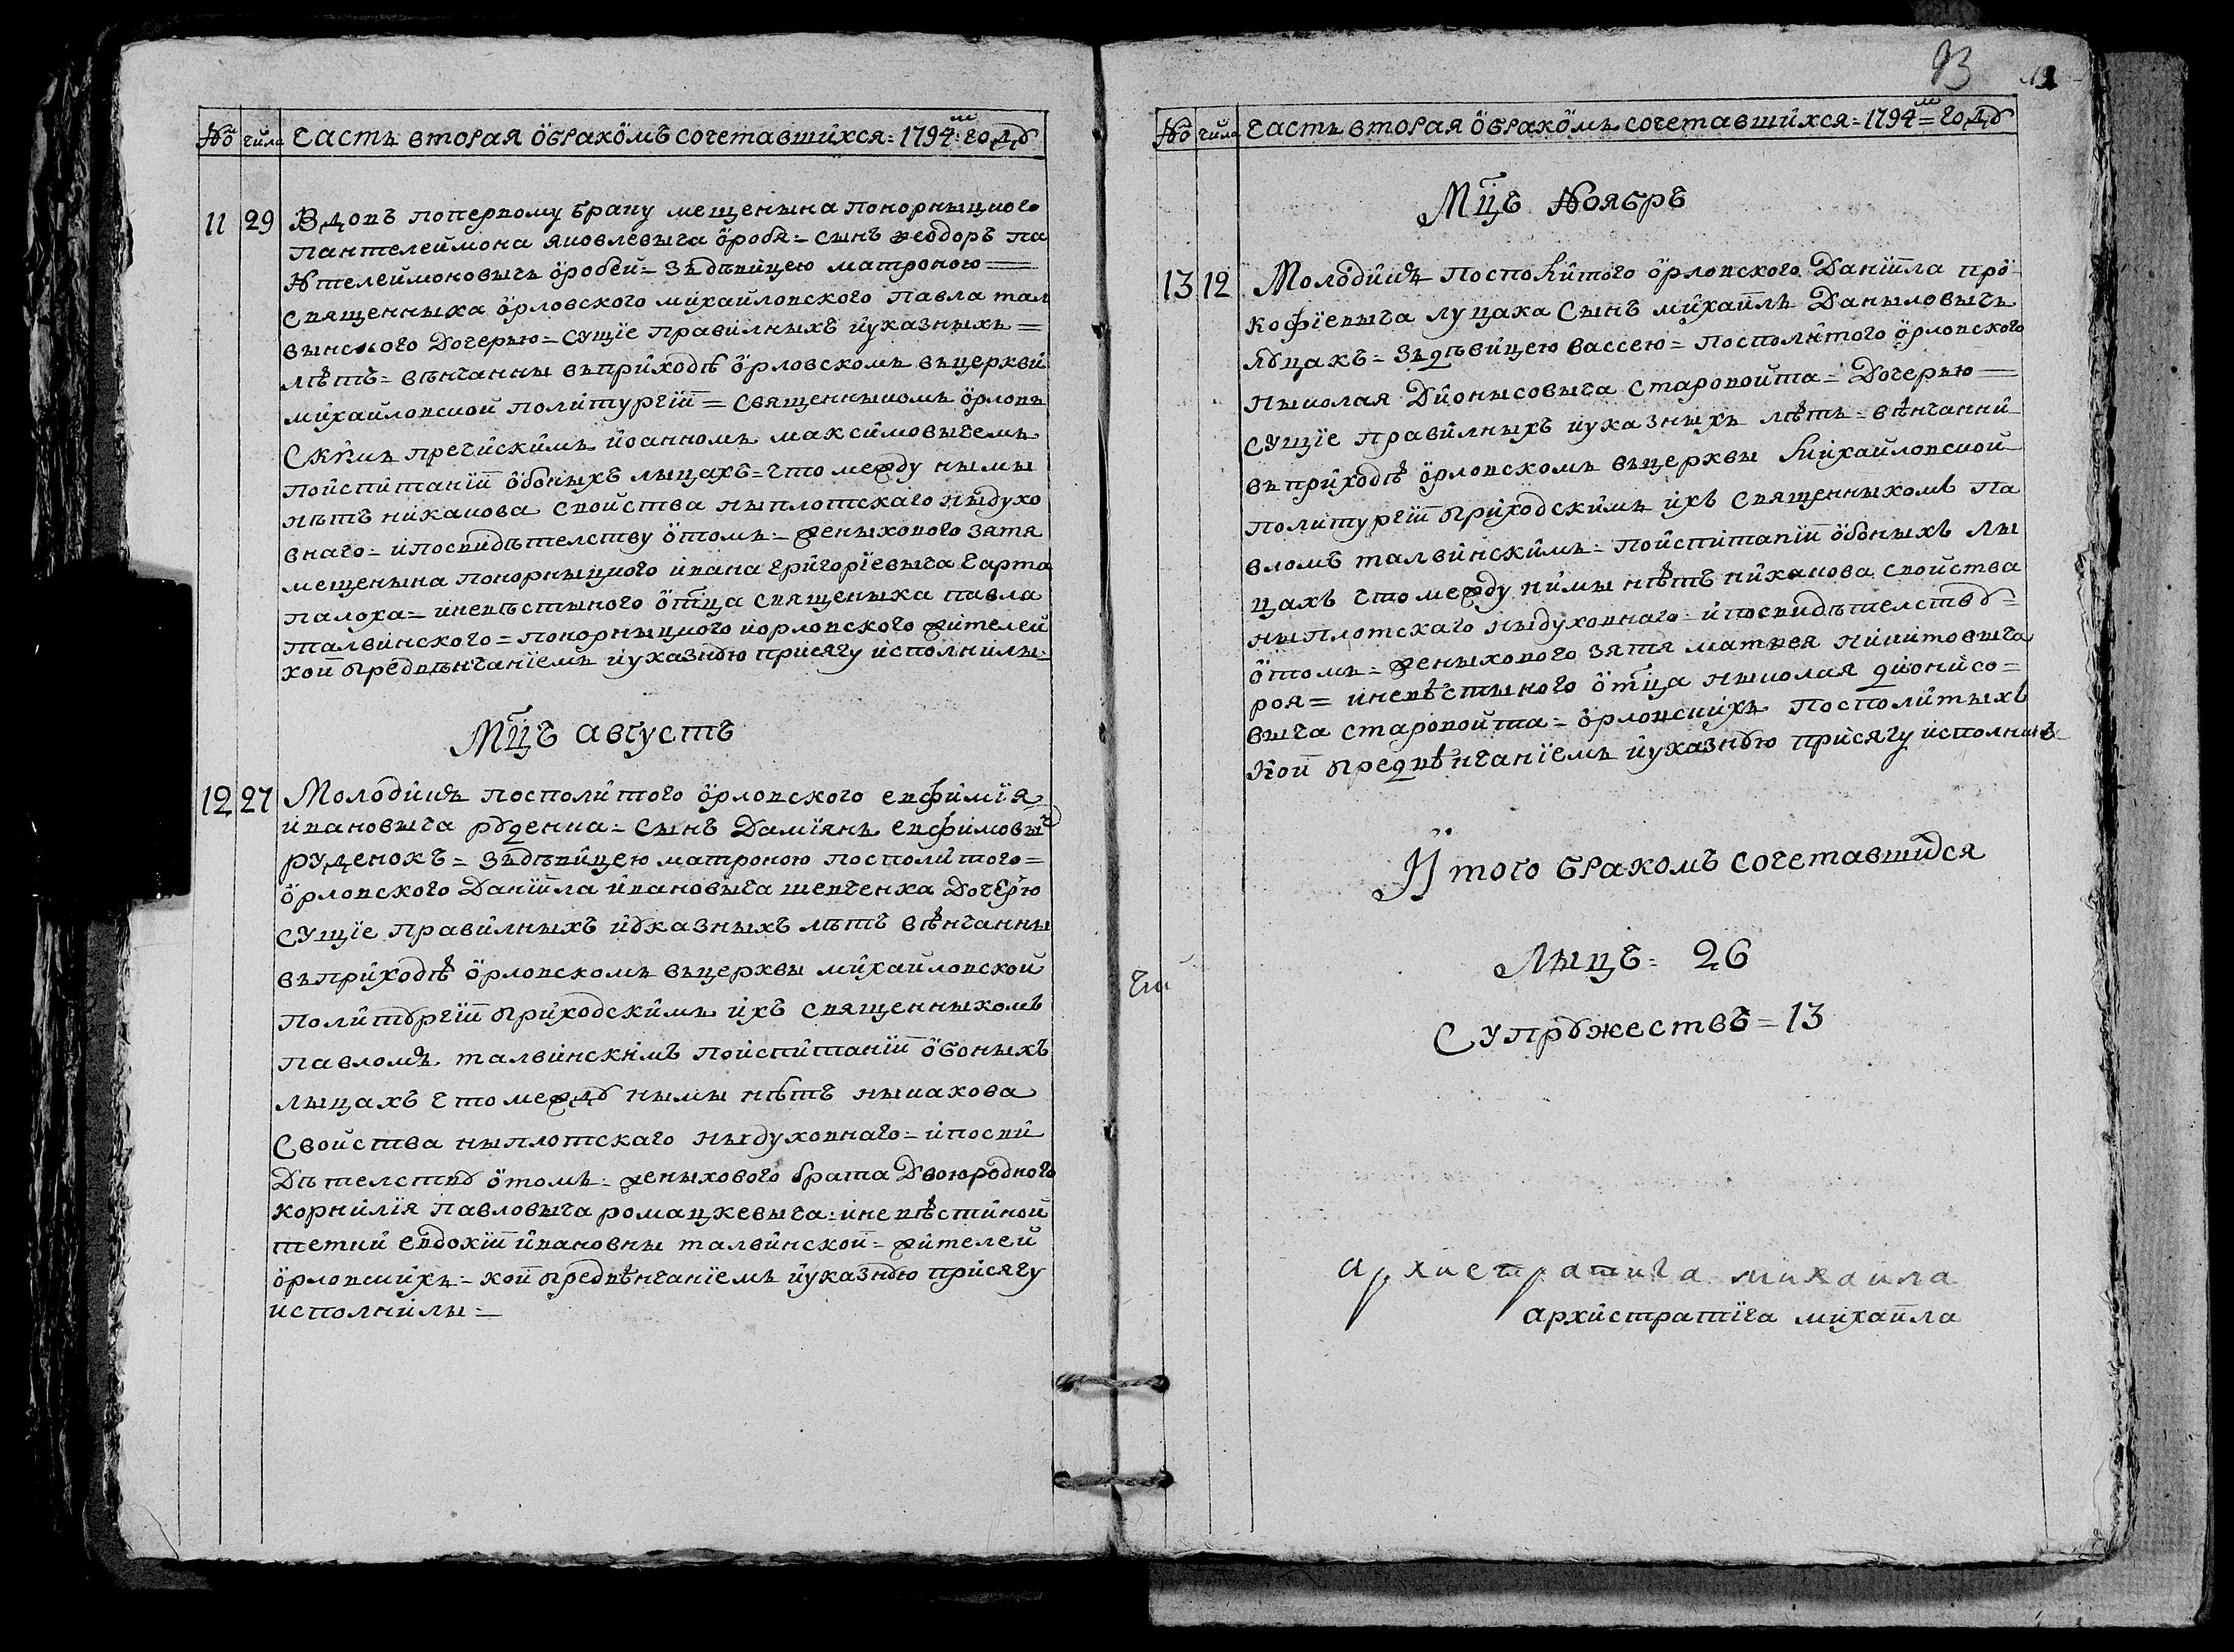 № числа Часть вторая о бракомъ сочетавшихся = 1794м: году
11 29 Вдовъ поперъвому браку мещенына понорныцкого
пантелеймона яковлевыча оробя = сынъ ѳеодоръ па
нтелеймоновычъ оробей = зъдѣвицею матроною =
священныка орловского михайловского павла тал
вынского дочерью = сущіе правилныхъ иуказныхъ =
лѣтъ = вѣнчанны въприходѣ орловскомъ въцеркви
михайловской политургіи = священныкомъ орловъ
скимъ пречискимъ иоанномъ максимовычемъ
поиспитаніи обоныхъ лыцахъ = что между нымы
нѣтъ никакова свойства ныплотскаго ныдухо
внаго = ипосвидѣтелству отомъ = женыхового зятя
мещенына понорныцкого ивана григоріевыча
палоха = иневѣстыного отца священыка павла
талвинского = понорныцкого иорловского жителей
кои предвѣнчаніемъ иуказную присягу исполнилы =
Мцъ августъ
12 27 Молодикъ посполитого орловского евфимія
ивановыча руденка = сынъ Даміянъ евфимовыч
руденокъ = зъдѣвицею матроною посполитого =
орловского Даніила ивановыча шевченка дочерю
сущіе правилныхъ иуказныхъ лѣтъ вѣнчанны
въприходѣ орловскомъ въцерквы михайловской
политургіи приходскимъ ихъ священныкомъ
павломъ талвинскимъ поиспитаніи обоныхъ
лыцахъ что между нымы нѣтъ ныкакова
свойства ныплотскаго ныдуховнаго = ипосви
дѣтелству отомъ = женыхового брата двоюродного
корнилія павловыча ромацкевыча = иневѣстиной
тетки евдокіи ивановны талвинской = жителей
орловскихъ = кои предвѣнчаніемъ иуказную присягу
исполнилы =
93
№ числа Часть вторая о бракомъ сочетавшихся = 1794м = году
Мцъ Ноябръ
13 12 Молодикъ посполитого орловского Даніила про
кофіевыча луцака сынъ михаилъ Даныловычъ
луцакъ = зъдѣвицею вассею = посполитого орловского
ныколая Дионысовыча старовойта = дочерью =
сущіе правилныхъ иуказныхъ лѣтъ = вѣнчанни
въприходѣ орловскомъ въцерквы михайловской
политургіи приходскимъ ихъ священныкомъ па
вломъ талвинскимъ = поиспитаніи обоныхъ лы
цахъ что между нимы нѣтъ никакова свойства
ныплотскаго ныдуховнаго = ипосвидѣтелству =
отомъ = женыхового зятя матвея
роя = иневѣстыного отца ныколая дионисо =
выча старовойта = орловскихъ посполитыхъ
кои предвѣнчаніемъ иуказную присягу
Итого бракомъ сочетавшихся
Лыцъ = 26
Супружествъ = 13
архистратига михаила
архистратіга михаила